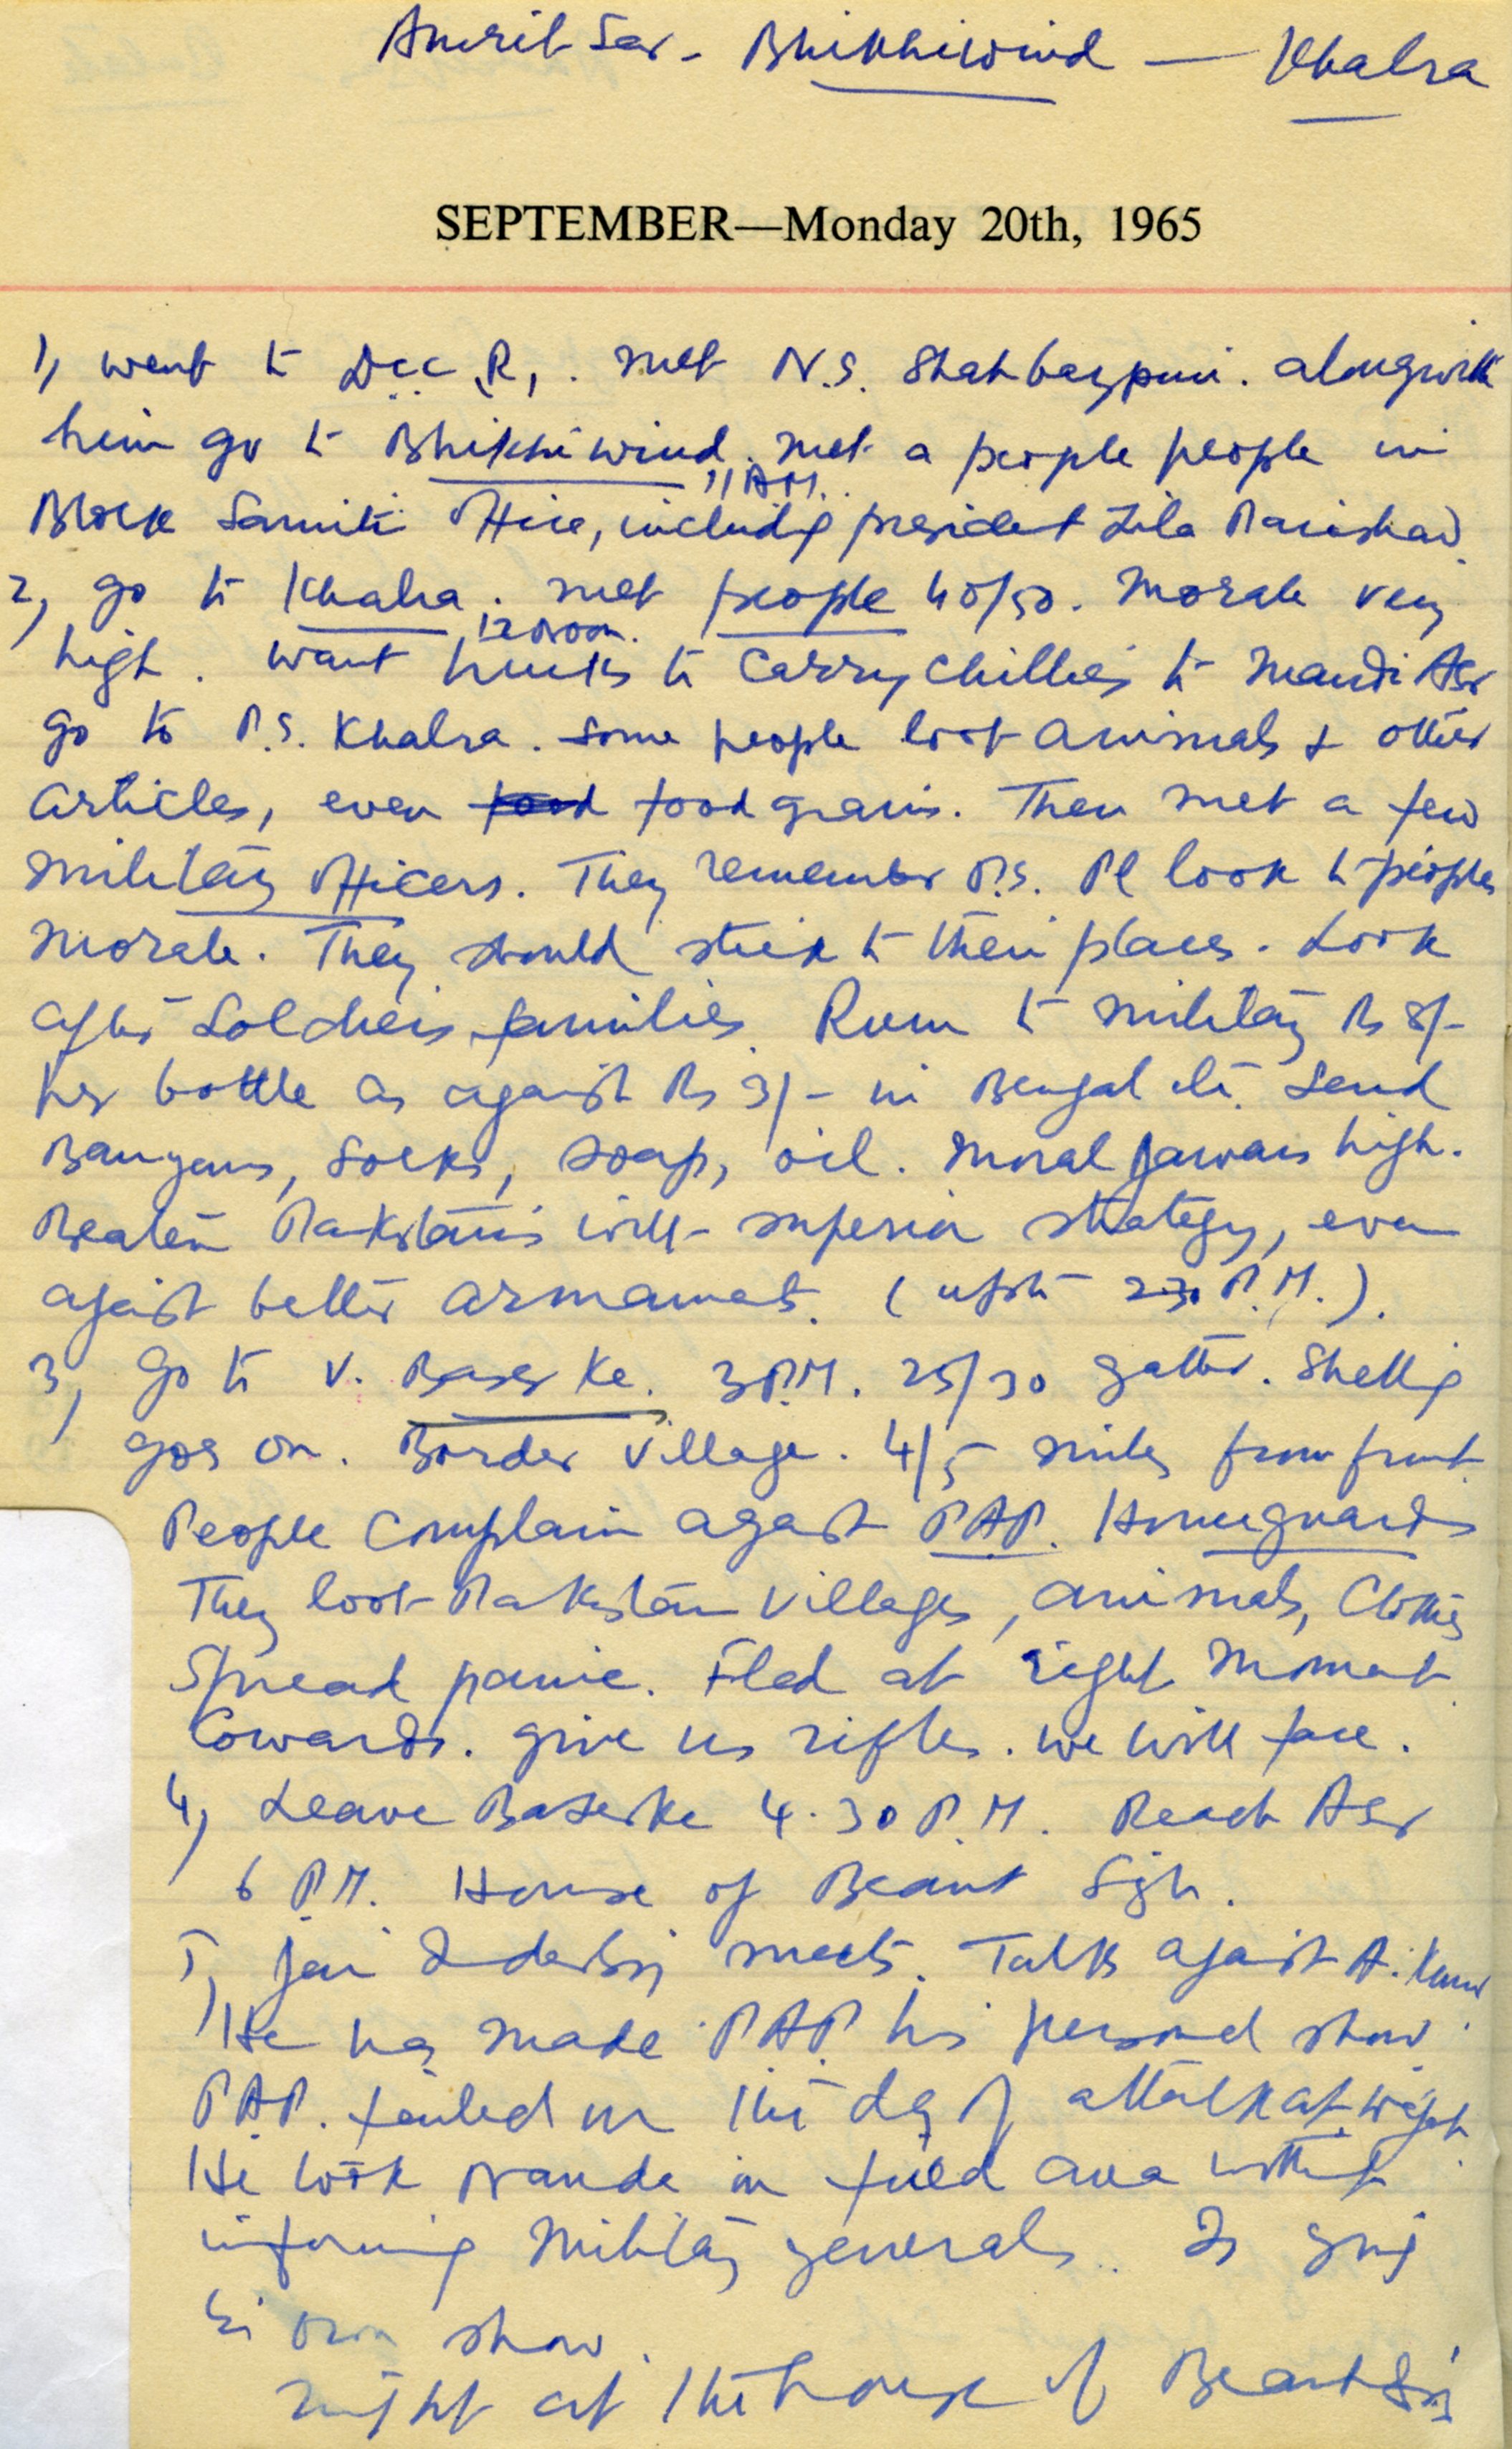 Amritsar - Bhikhiwind — Khalra
SEPTEMBER—Monday 20th, 1965
1, went to D.C.C.R,. met N.S. Shahbazpuri. alongwith
him go to Bhikhiwind. met a people people in
11 AM.
Block Samiti Office, includig president Zila Parishad.
2, go to Khalra. met people 40/50. Morale very
12 noon.
high. want trucks to carry chillies to Mandi Asr
go to P.S. Khalra. some people loot animals & other
articles, even food foodgrains. Then met a few
military officers. They remember P.S. Pl look to peoples
morale. They should stick to their places. Look
after Soldiers families. Rum to military Rs 8/-
per bottle as against Rs 3/- in Bengal etc. Send
Banyans, Socks, soap, oil. Moral Jawans high.
Beaten Pakistanis with superior strategy, even
against better armaments. (upto 2-30 P.M.).
3, go to V. Baserke. 3 P.M. 25/30 gather. Shellig
goes on. Border Village. 4/5 miles from front.
People complain against PAP. Homeguards
They loot Pakistan Villages, animals, Clothes
Spread panic. Fled at right moment.
Cowards. give us rifles. we will face.
4, Leave Baserke 4.30 P.M. Reach Asr
6 P.M. House of Beant Sigh.
5, Jai Indersigh meets. Talks against A. Kumar
He has made PAP his personal show.
PAP. failed on the day of attack at
He took in field area without
informing Military generals. Is
his own show.
night at the house of Beant Sigh